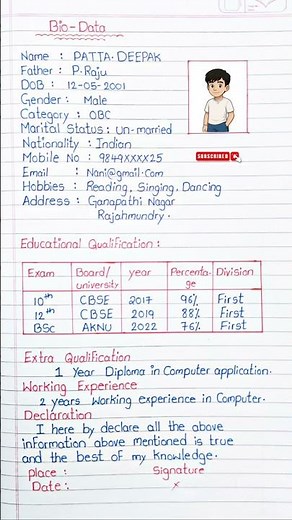 Bio-Data
Name : PATTA.DEEPAK
Father : P.Raju
DOB : 12-05-2001
Gender : Male
Category : OBC
Marital Status : Un-married
Nationality : Indian
Mobile No : 9849XXXX25
Email : Nani@gmail.Com
Hobbies : Reading, Singing, Dancing
Address : Ganapathi Nagar
Rajahmundry.
SUBSCRIBED
Educational Qualification :
Exam Board/university year Percenta-ge Division
10th CBSE 2017 96% First
12th CBSE 2019 88% First
BSc AKNU 2022 76% First
Extra Qualification
1 Year Diploma in Computer application.
Working Experience
2 years Working experience in Computer.
Declaration
I here by declare all the above
information above mentioned is true
and the best of my knowledge.
place : Signature
Date :. x